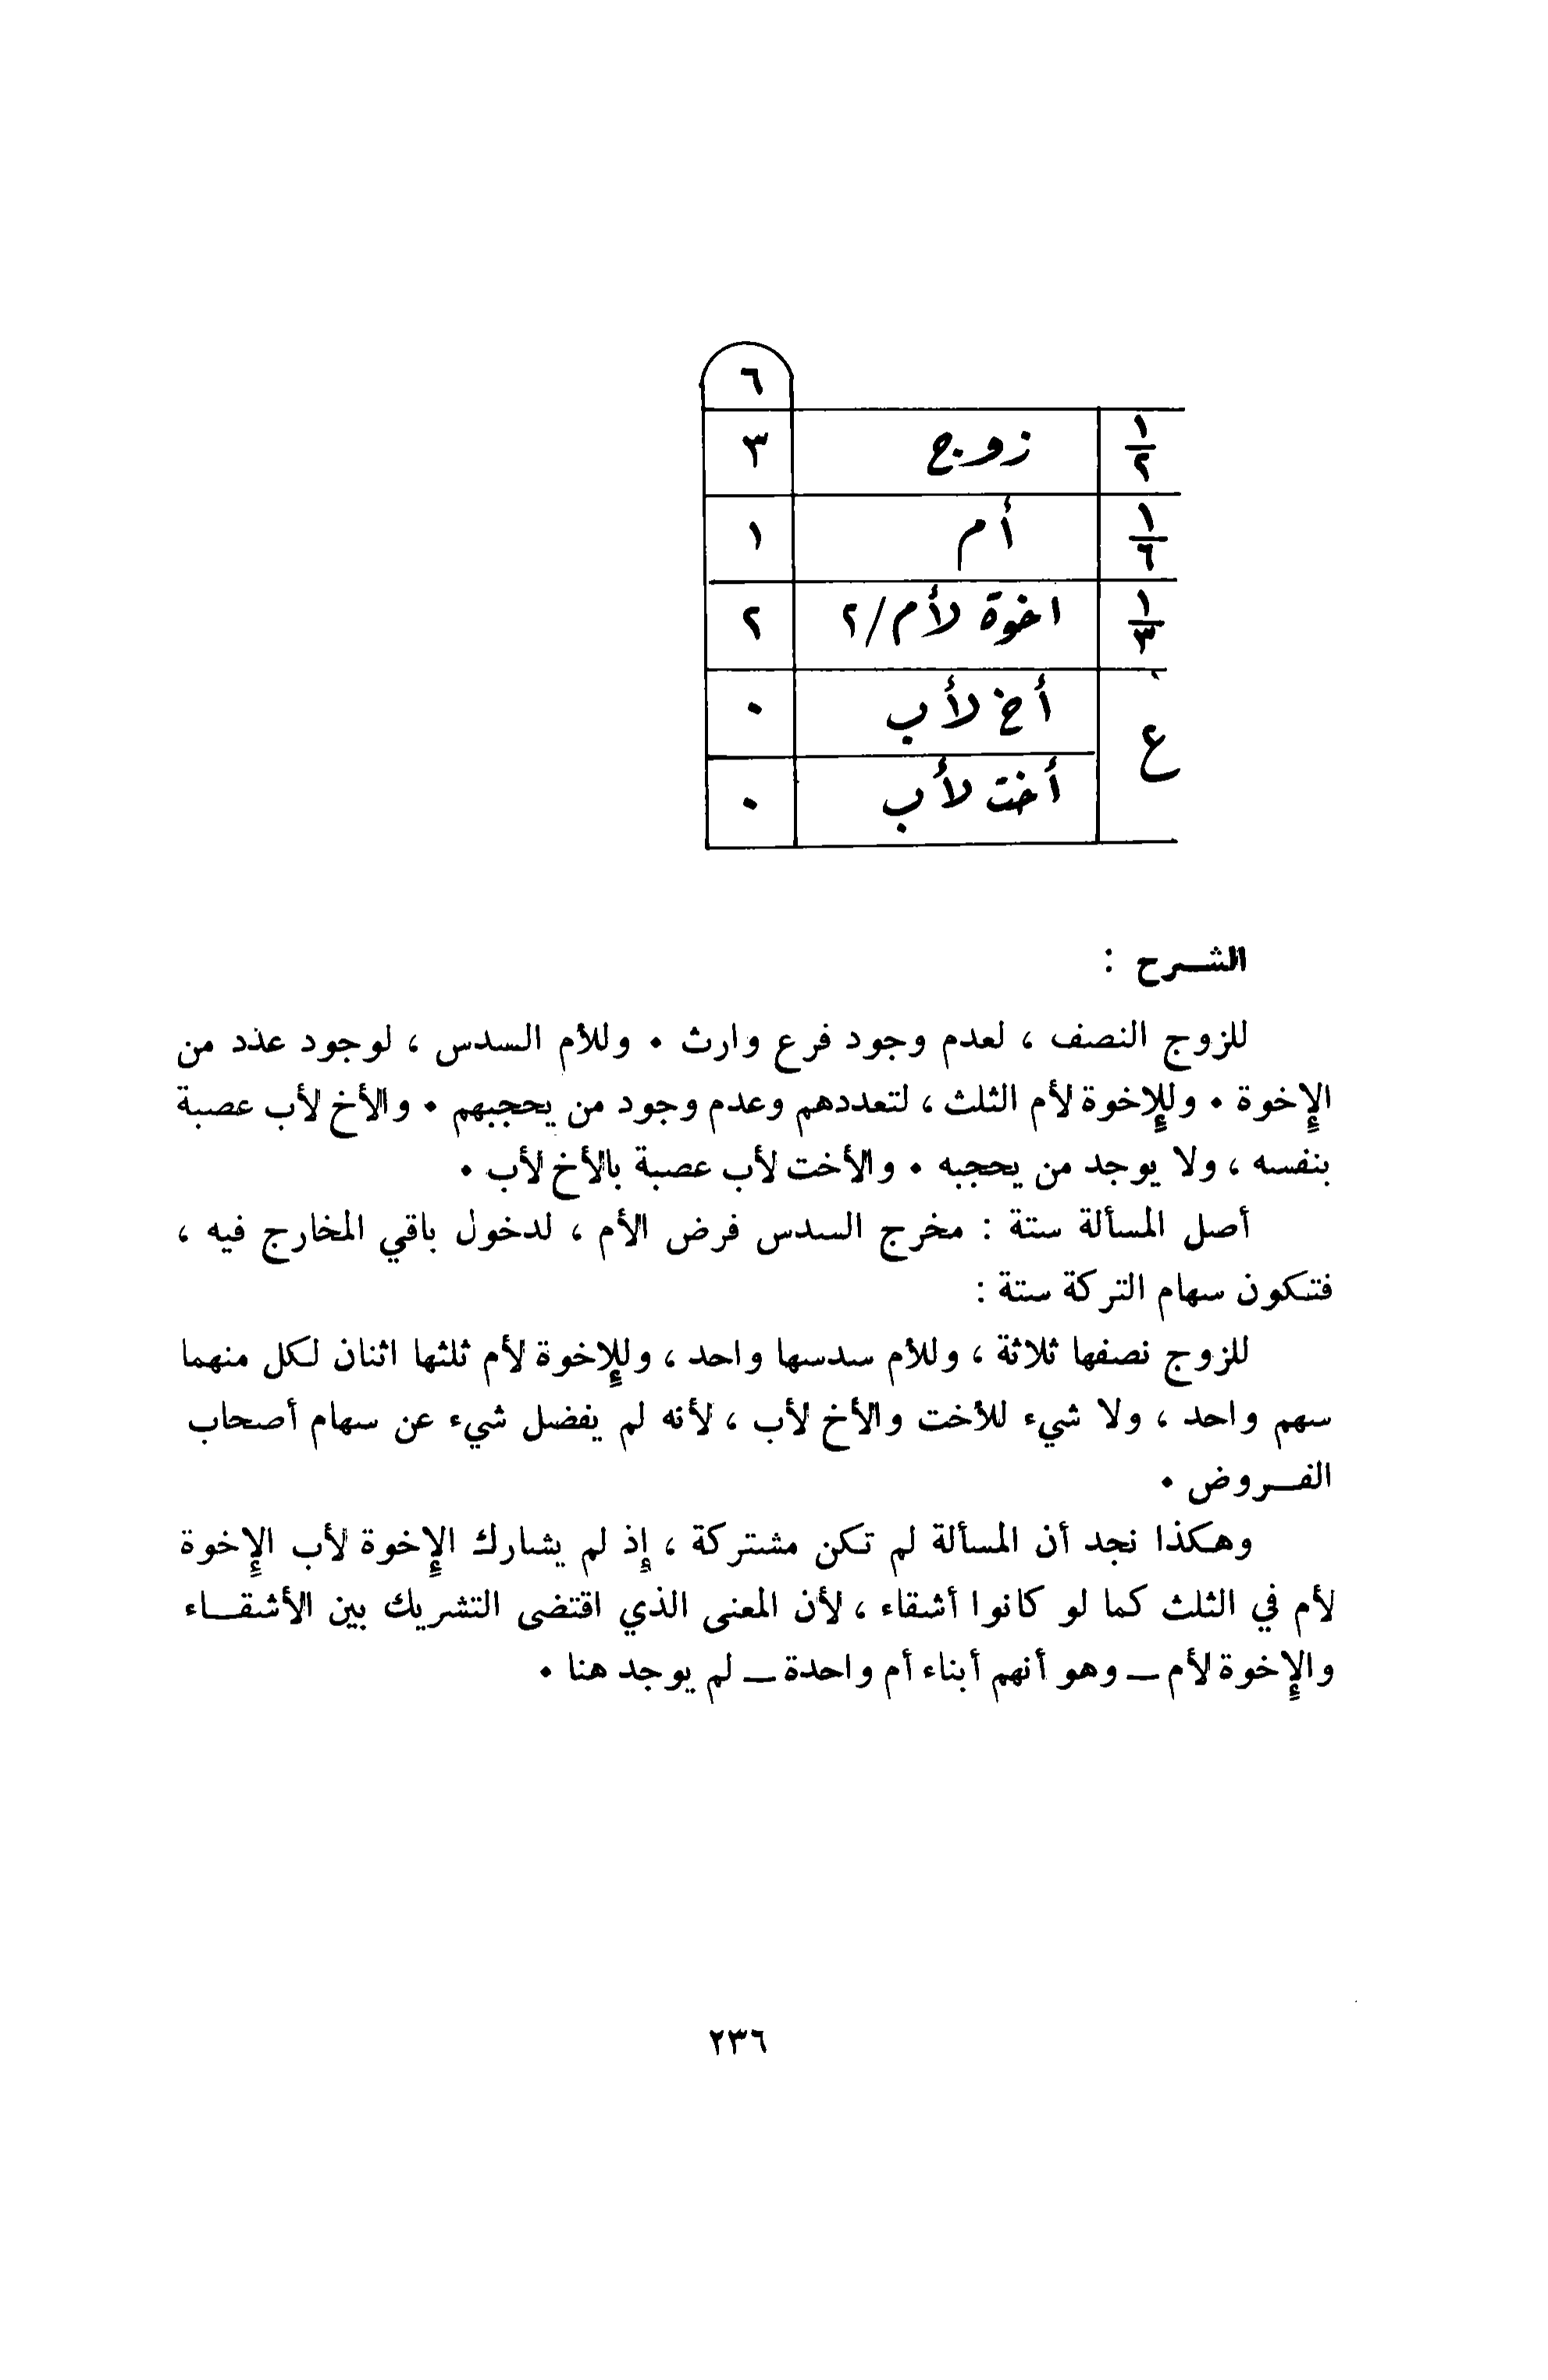 ٦
١/٢ زوج ٣
١/٦ أم ١
١/٣ اخوة لأم/٢ ٢
ع أخ لأب ٠
أخت لأب ٠
الشرح :
للزوج النصف ، لعدم وجود فرع وارث . وللأم السدس ، لوجود عدد من
الإخوة . وللإخوة لأم الثلث ، لتعددهم وعدم وجود من يحجبهم . والأخ لأب عصبة
بنفسه ، ولا يوجد من يحجبه . والأخت لأب عصبة بالأخ لأب .
أصل المسألة ستة : مخرج السدس فرض الأم ، لدخول باقي المخارج فيه ،
فتكون سهام التركة ستة :
للزوج نصفها ثلاثة ، وللأم سدسها واحد ، وللإخوة لأم ثلثها اثنان لكل منهما
سهم واحد ، ولا شيء للأخت والأخ لأب ، لأنه لم يفضل شيء عن سهام أصحاب
الفروض .
وهكذا نجد أن المسألة لم تكن مشتركة ، إذ لم يشارك الإخوة لأب الإخوة
لأم في الثلث كما لو كانوا أشقاء ، لأن المعنى الذي اقتضى التشريك بين الأشقاء
والإخوة لأم ــ وهو أنهم أبناء أم واحدة ــ لم يوجد هنا .
٢٣٦